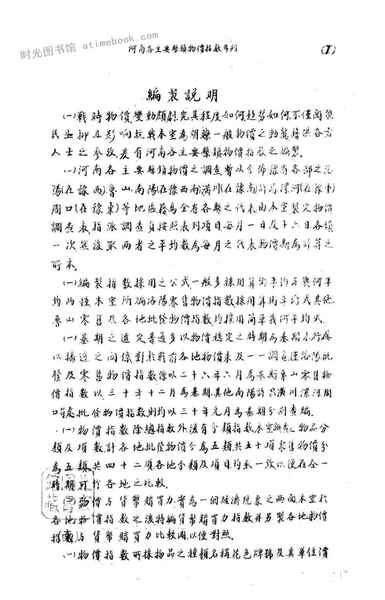 时光图书馆 atimebook.com
河南各主要縣鎮物價指數專刊
(1)
編製說明
(一)戰時物價變動頗劇究其程度如何趨勢如何不僅商榮
民生抑且影响抗戰本室為明瞭一般物價之動態藉供各方
人士之參攷爰有河南各主要縣鎮物價指數之編製。
(一)河南各主要縣鎮物價之調查暫以介佈豫省各部之洛
陽在豫西魯山南陽在豫西南潢川在豫南許昌漯河在豫中
周口(在豫東)等地區藉為全省各縣之代表由本室製定物價
調查表指派調查員按照表列項目每月一日及十六日各填
一次然後取兩者之平均數為每月之代表物價斯為計算之
所本。
(一)編製指數採用之公式一般多採用算術平均與幾何平
均兩種本室所編洛陽零售物價指數採用算術平均式其他
魯山零售及各地批發物價指數均採用簡單幾何平均式。
(一)基期之選定普通多以物價穩定之時期為基期本所爰
以搞遠之向係對於戰前各地物價未及一一調查僅洛陽批
發及零售物價指數係以二十六年六月為基期魯山零售物
價指數以三十年十二月為基期其他南陽許昌潢川漯河周
口等處批發物價指數則均以三十年元月為基期分別查編。
(一)物價指數除總指數外須有分類指數本室所編物品分
類及項數計各地批發物價分為五類共五十項零售物價分
為五類共四十二項各地分類及項目均求一致以便在全一
時期對於各地之比較。
物價與貨幣購買力實為一個經濟現象之兩面本室於
各地物價指數之後特編貨幣購買力指數并另製各地物價
指數與貨幣購買力比較圖以便對照。
(一)物價指數所採物品之種類名稱花色牌號及其單位清